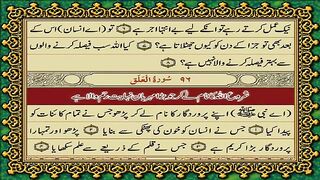 نیک عمل کرتے رہے تو انکے لیے بے انتہا اجر ہے ۝ تو (اے انسان) اس کے
بعد بھی تو جزا کے دن کو کیوں جھٹلاتا ہے؟ ۝ کیا اللہ سب فیصلہ کرنے والوں سے
بہتر فیصلہ کرنے والا نہیں ہے؟ ۝
۹۶ سُوْرَۃُ الْعَلَق
شروع اللہ کا نام لے کر جو بڑا مہربان نہایت رحم والا ہے
(اے نبی ﷺ) اپنے پروردگار کا نام لے کر پڑھو جس نے تمام کائنات کو
پیدا کیا ۝ جس نے انسان کو خون کی پھٹکی سے بنایا ۝ پڑھو اور تمہارا
پروردگار بڑا کریم ہے ۝ جس نے قلم کے ذریعے سے علم سکھایا ۝